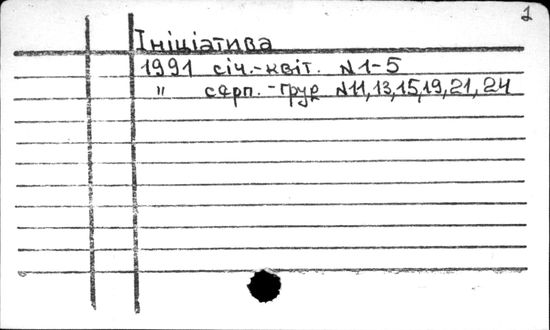 1
Ініціатива
1991 січ.-квіт. N1-5
" серп.-груд N11,13,15,19,21,24